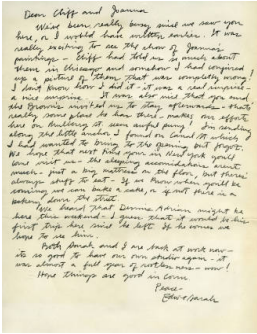 Dear Cliff and Joanna
We've been really busy since we saw you
here, or I would have written earlier. It was
really exciting to see the show of Joanna's
paintings - Cliff had told us so much about
them in Chicago and somehow I had conjured
up a picture of them that was completely wrong!
I don't know how I did it - it was a real surprise -
a nice surprise. It was also nice that you and
the Browns invited us to stay afterwards - that's
really some place he has there - makes our efforts
here on building it seem awful puny! I'm sending
along the little anchor I found on Canal St which
I had wanted to bring to the opening but forgot.
We hope that next time you're in New York you'll
come visit us - the sleeping accomodations aren't
much - just a big mattress on the floor, but there's
always stuff to eat - If we know when you'll be
coming we can bake a cake, or if not there is a
bakery down the street.
We heard that Dennis Adrian might be
here this weekend - I guess that it would be his
first trip here since he left. If he comes we
hope to see him.
Both Sarah and I are back at work now -
its so good to have our own studios again - it
was almost a full year of restlessness - wow!
Hope things are good in Conn
Peace -
Edw & Sarah